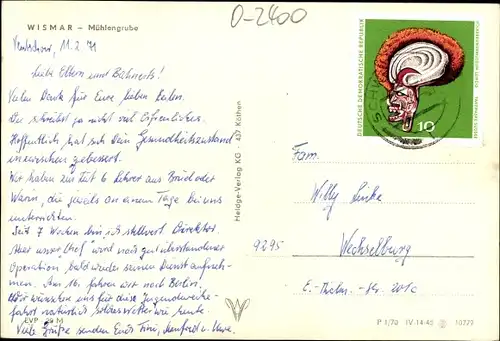 O-2400
WISMAR – Mühlengrube
Ventschow, 11.2.71
Liebe Eltern und Bähnert's!
Vielen Dank für Eure lieben Zeilen.
Du schreibst ja nicht viel Erfreuliches.
Hoffentlich hat sich Dein Gesundheitszustand
inzwischen gebessert.
Wir haben zur Zeit 6 Lehrer aus Brüel oder
Warin, die jeweils an einem Tage bei uns
unterrichten.
Seit 7 Wochen bin ich stellvert. Direktor.
Aber unser "Chef" wird nach gut überstandener
Operation bald wieder seinen Dienst aufneh-
men. Am 16. fahren wir nach Berlin.
Wir wünschen uns für diese Jugendweihe-
fahrt natürlich solches Wetter wie heute.
Viele Grüße senden Euch Tini, Manfred u. Uwe.
EVP M
Heldge-Verlag KG · 437 Köthen
DEUTSCHE DEMOKRATISCHE REPUBLIK
10
Fam.
Willy Linke
9295 Wechselburg
E.-Thälm.-Str. 201c
P 1/70 IV-14-45 10772